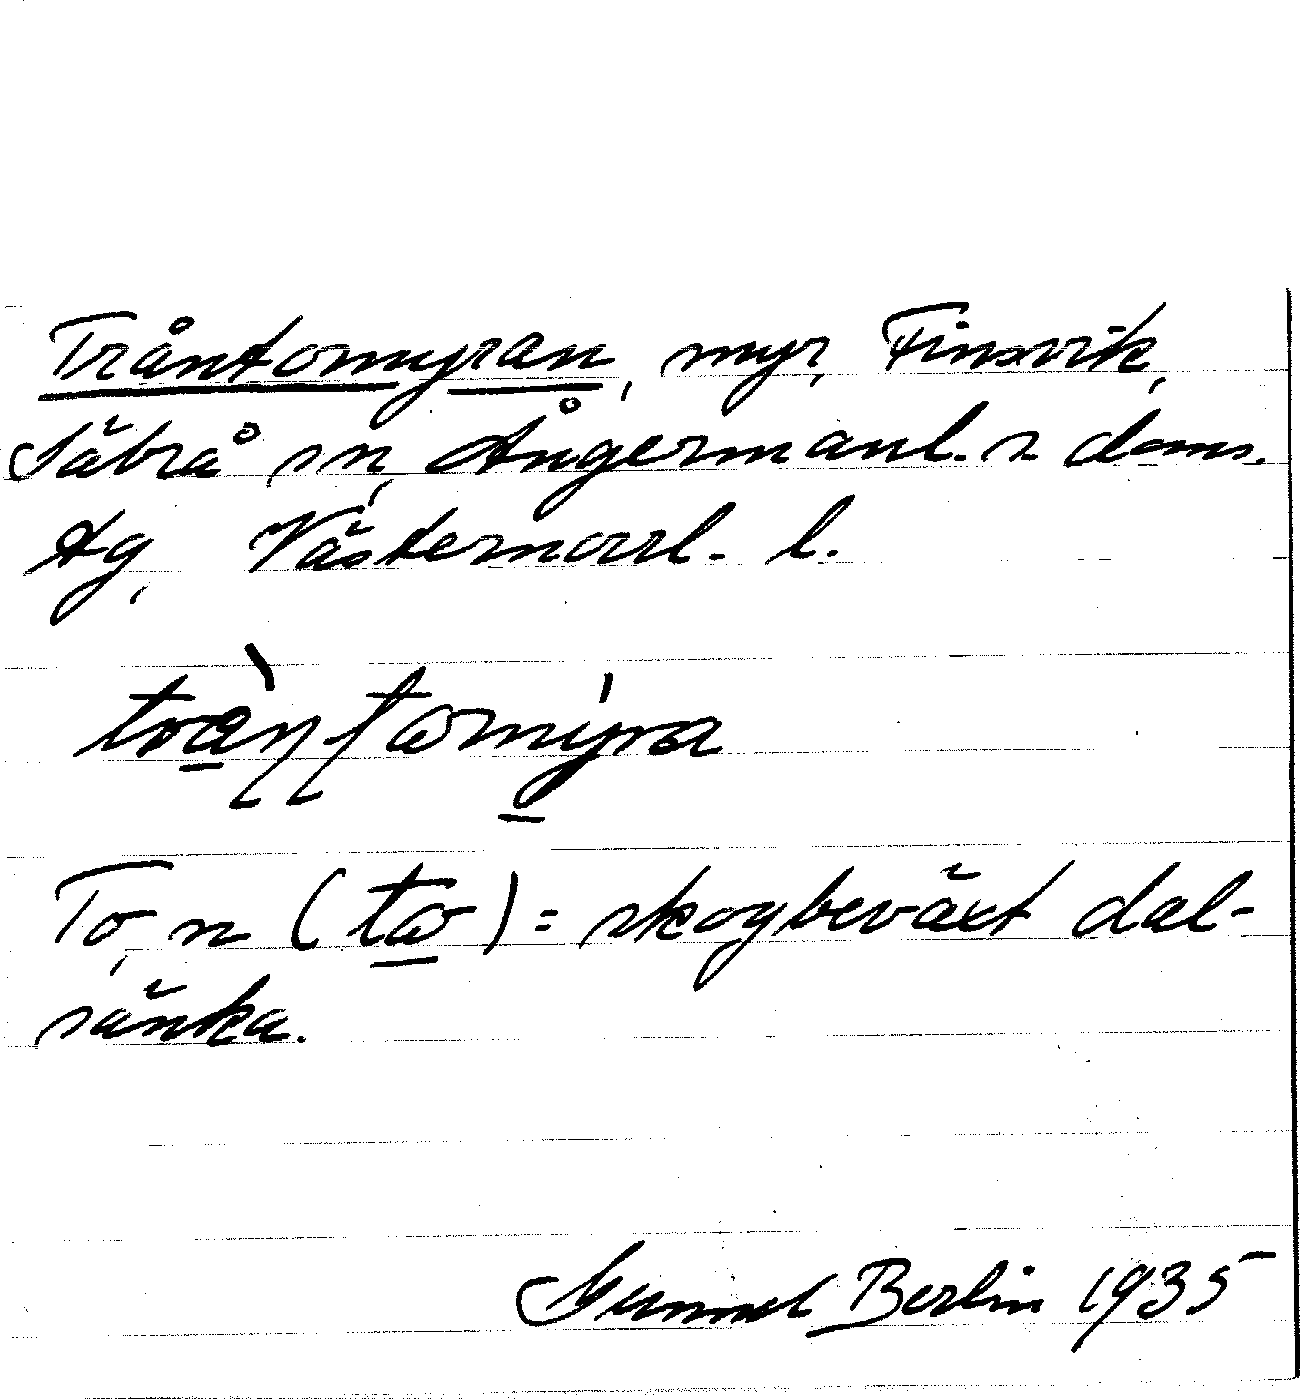 Tråntomyran, myr, Finsvik,
Säbrå sn, Ångermanl. s doms.
tg, Västernorrl. l.
To, n (tω) = skogbeväxt dal-
sänka.
Gunnel Berlin 1935